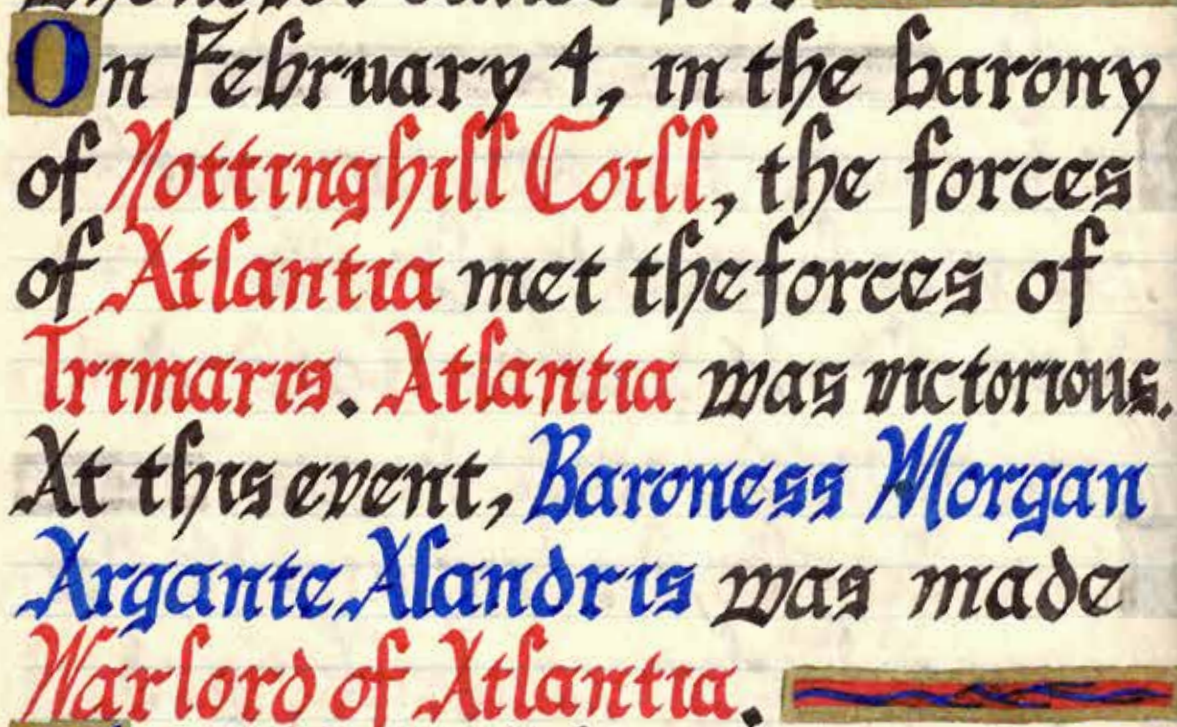 On February 4, in the barony
of Nottinghill Coill, the forces
of Atlantia met the forces of
Trimaris. Atlantia was victorious.
At this event, Baroness Morgan
Argante Alandris was made
Warlord of Atlantia.